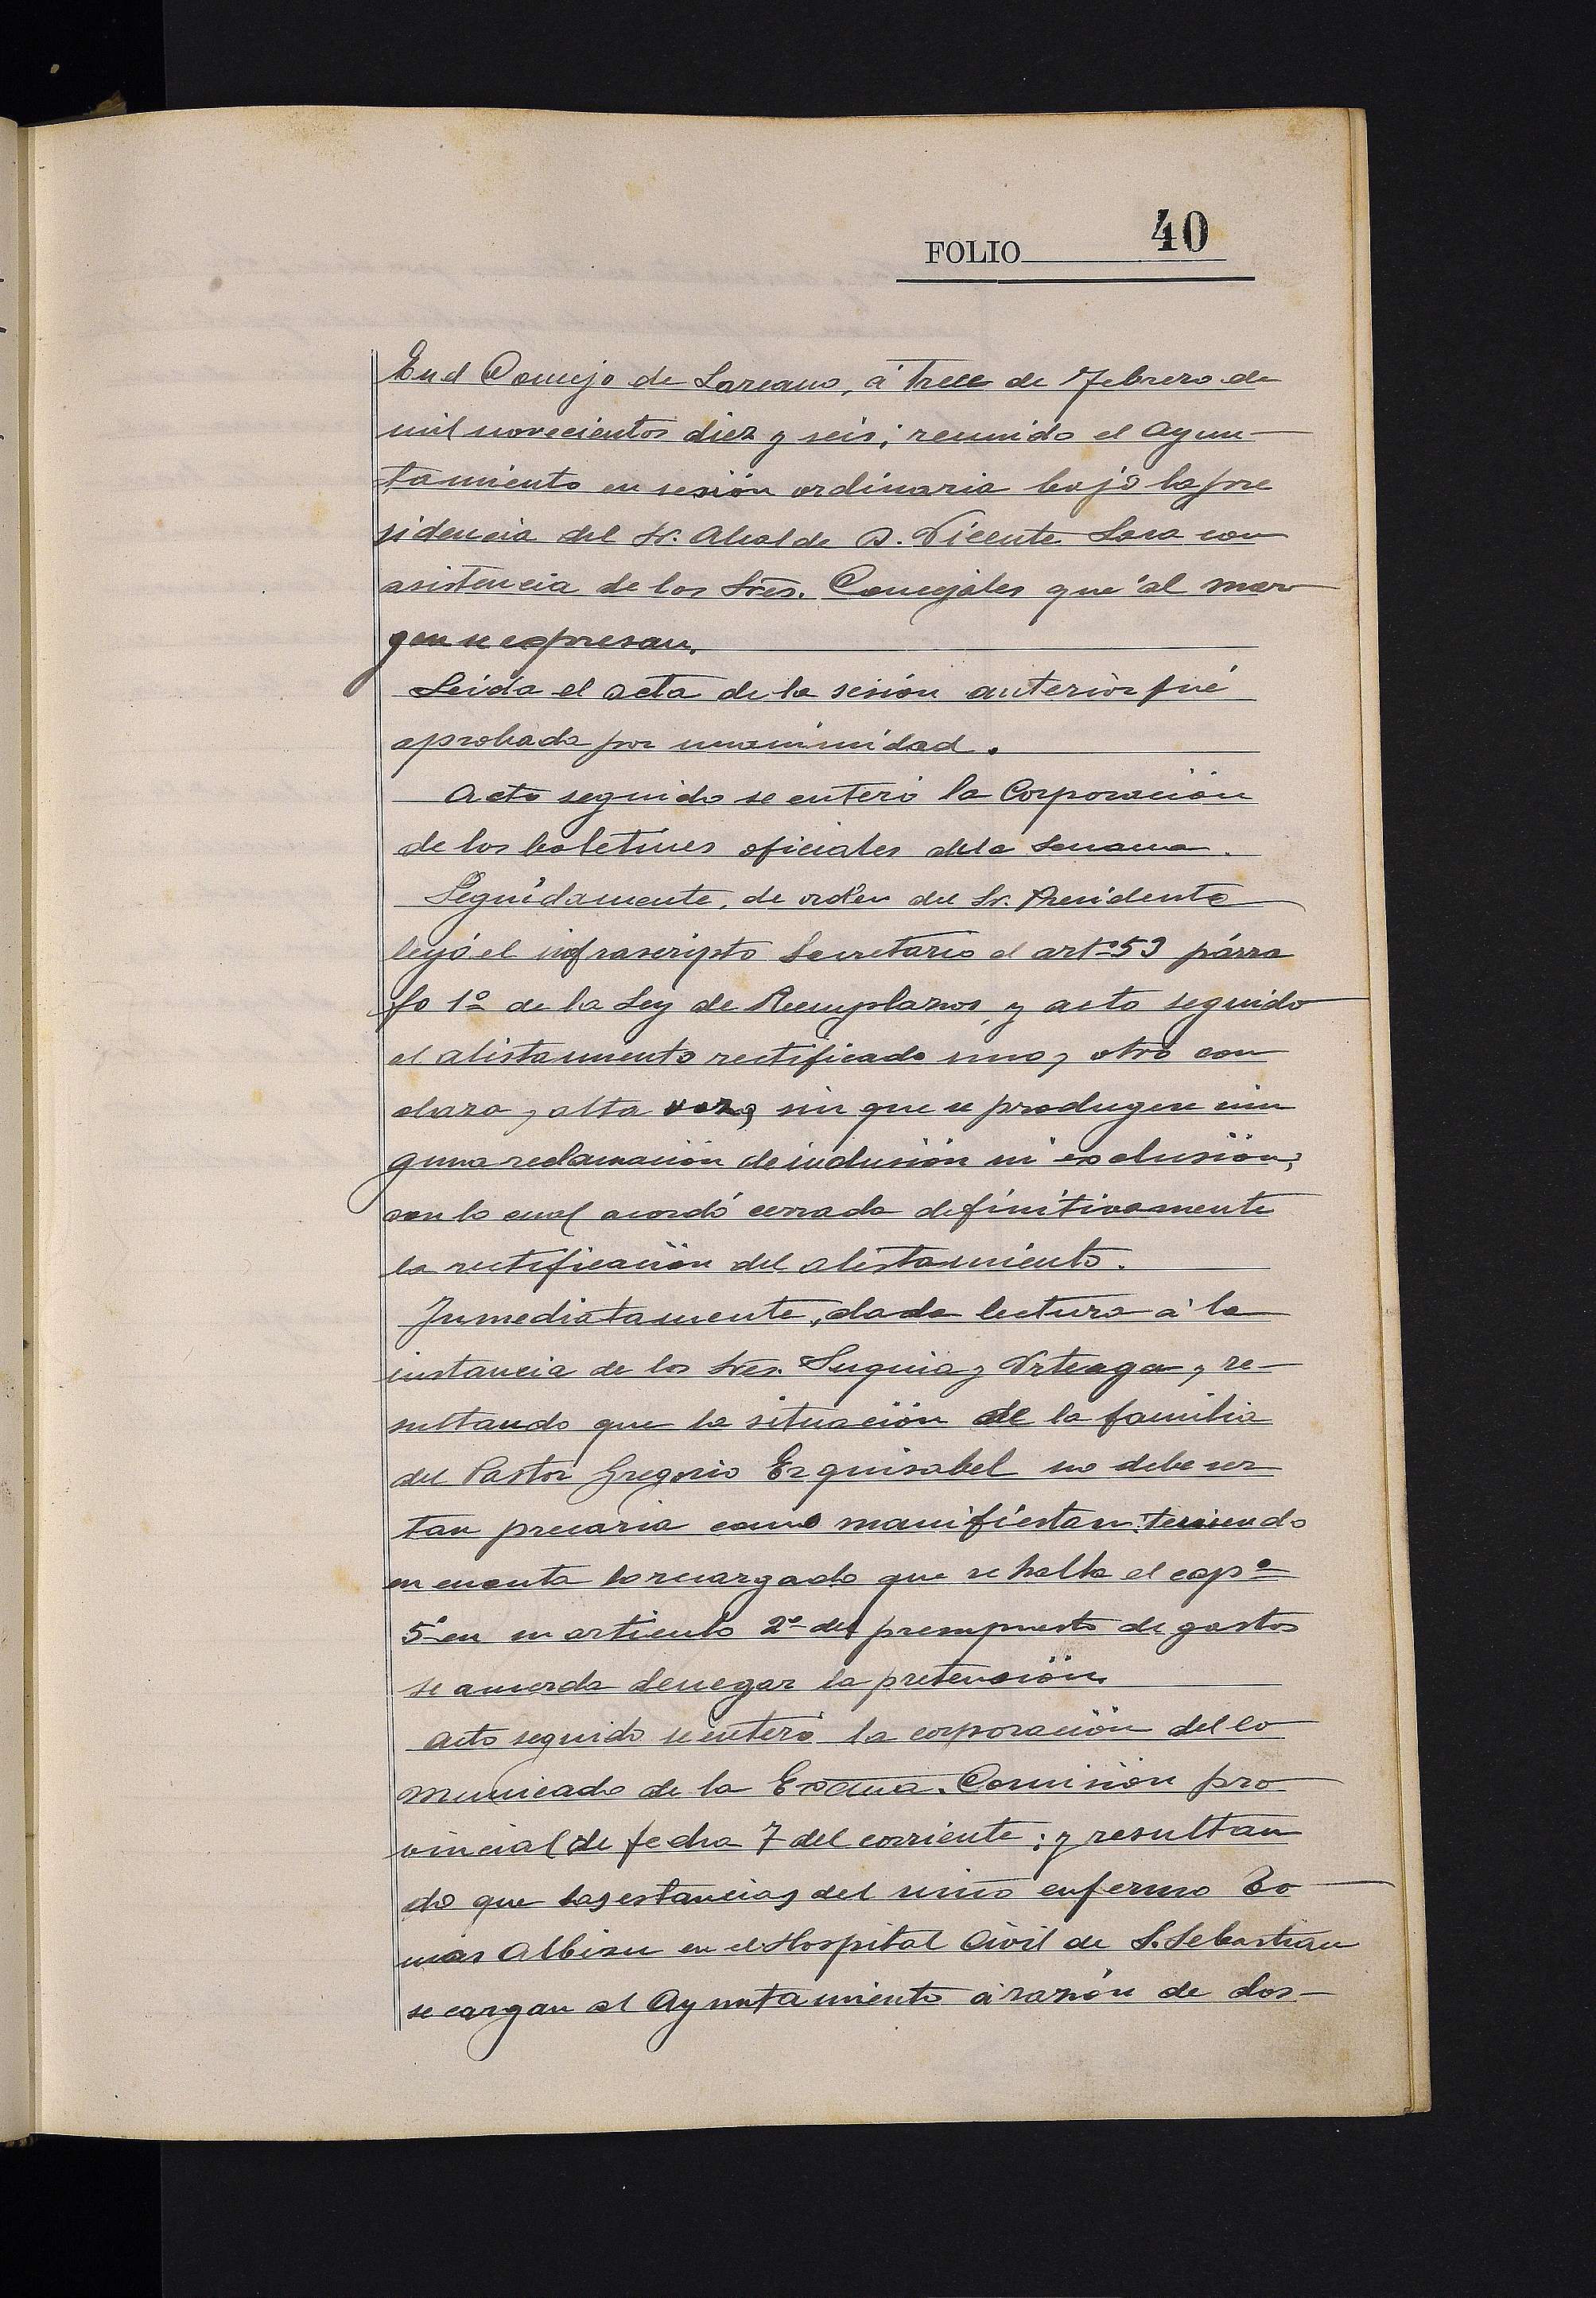 FOLIO 40
En el Concejo de Lazcano, á trece de Febrero de
mil novecientos diez y seis; reunido el Ayun-
tamiento en sesión ordinaria bajo la pre
sidencia del Sr. Alcalde D. Vicente Lasa con
asistencia de los Sres. Concejales que al mar
gen se expresan.
Leida el acta de la sesión anterior fué
aprobada por unanimidad.
Acto seguido se enteró la Corporación
de los boletines oficiales de la semana.
Seguidamente, de orden del Sr. Presidente
leyó el infrascripto Secretario el artº 53 párra
fo 1º de la Ley de Reemplazos, y acto seguido
el alistamiento rectificado uno y otro con
clara y alta voz, sin que se produgese nin
guna reclamación de inclusión ni exclusión;
con lo cual acordó cerrada definitivamente
la rectificación del alistamiento.
Inmediatamente, dada lectura á la
instancia de los Sres. Suquia y Urteaga, re-
sultando que la situación de la familia
del Pastor Gregorio Ezquisabel no debe ser
tan precaria como manifiestan: teniendo
en cuenta lo recargado que se halla el capº
5º en su articulo 2º del presupuesto de gastos
se acuerda denegar la pretensión.
Acto seguido se enteró la corporación del co
municado de la Excma. Comisión pro
vincial de fecha 7 del corriente; y resultan
do que las estancias del niño enfermo To
mas Albisu en el Hospital Civil de S. Sebastián
se cargan al Ayuntamiento á razón de dos-